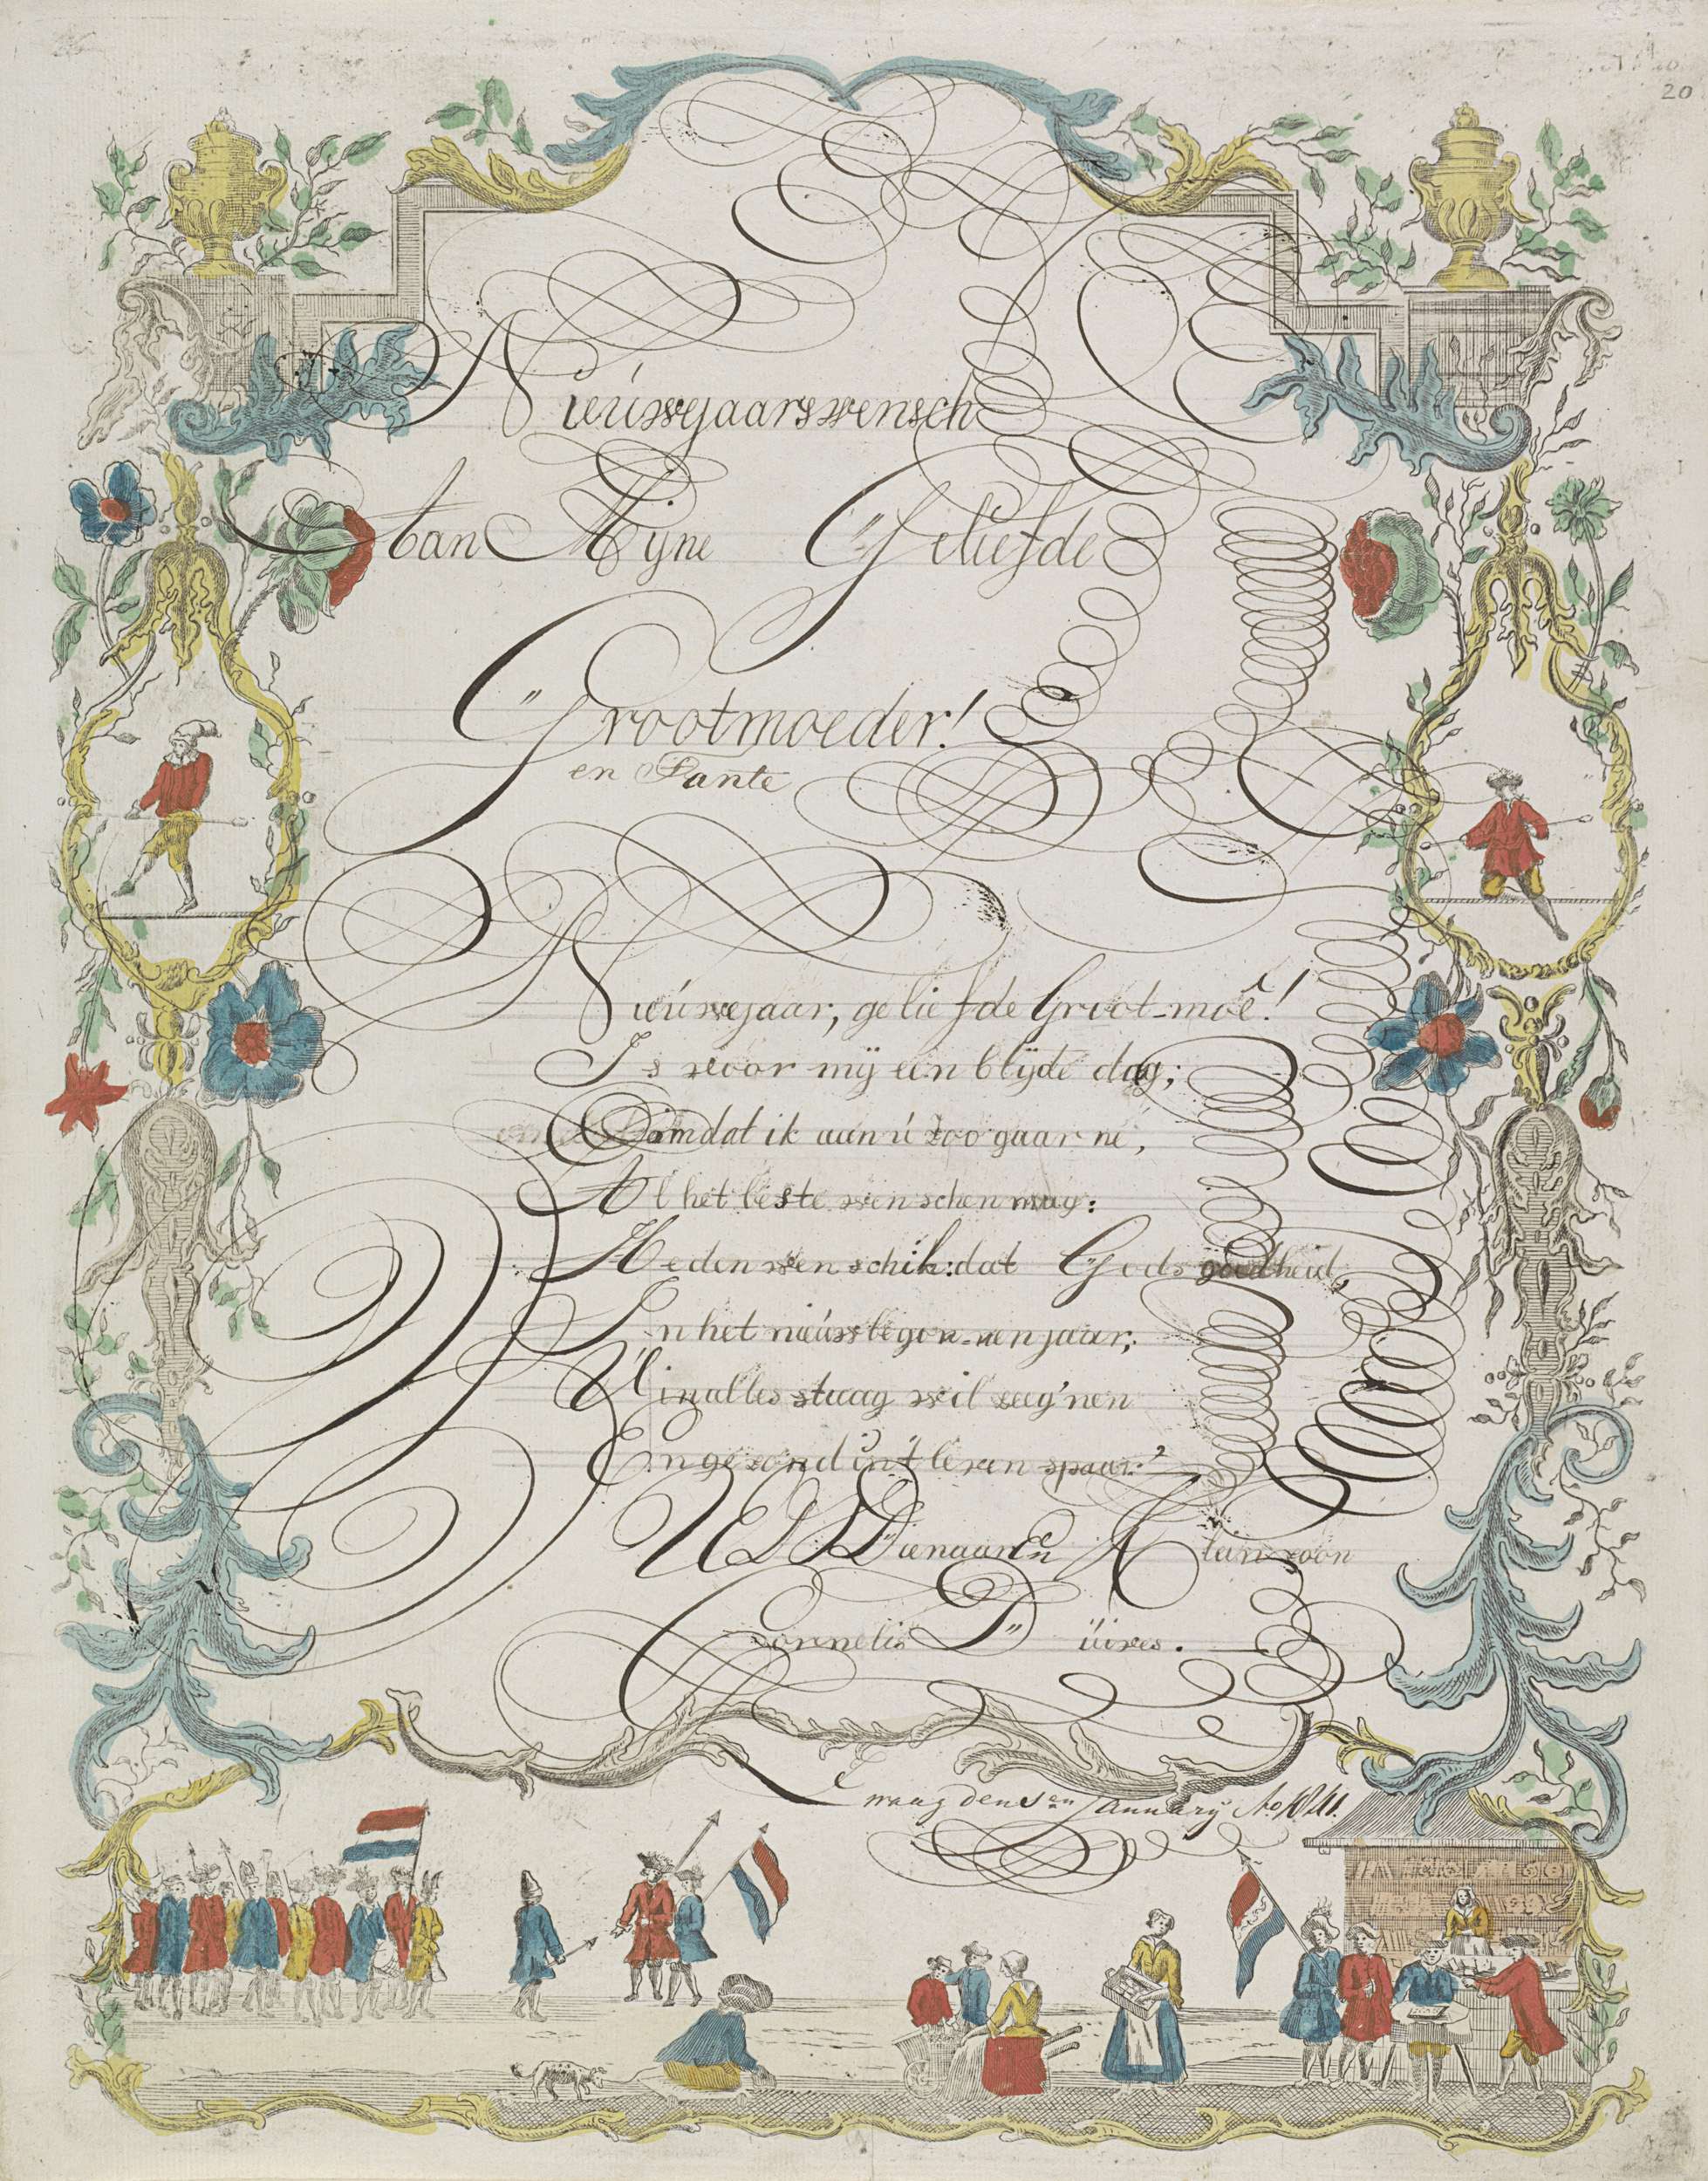 20
Nieuwejaarswensch
Aan Mijne Geliefde
Grootmoeder!
en Tante
Nieuwejaar, geliefde Groot-moê!
Is voor mij een blijde dag;
Omdat ik aan ú zoo gaarne,
Al het beste wenschen mag:
Heden wensch ik: dat Gods goedheid,
In het nieuw begon-nen jaar,
U in alles staag wil zeeg'nen
En gezond in't leven spaar.
UED Dienaar En Kleinzoon
Cornelis D
den January Ao 1841.